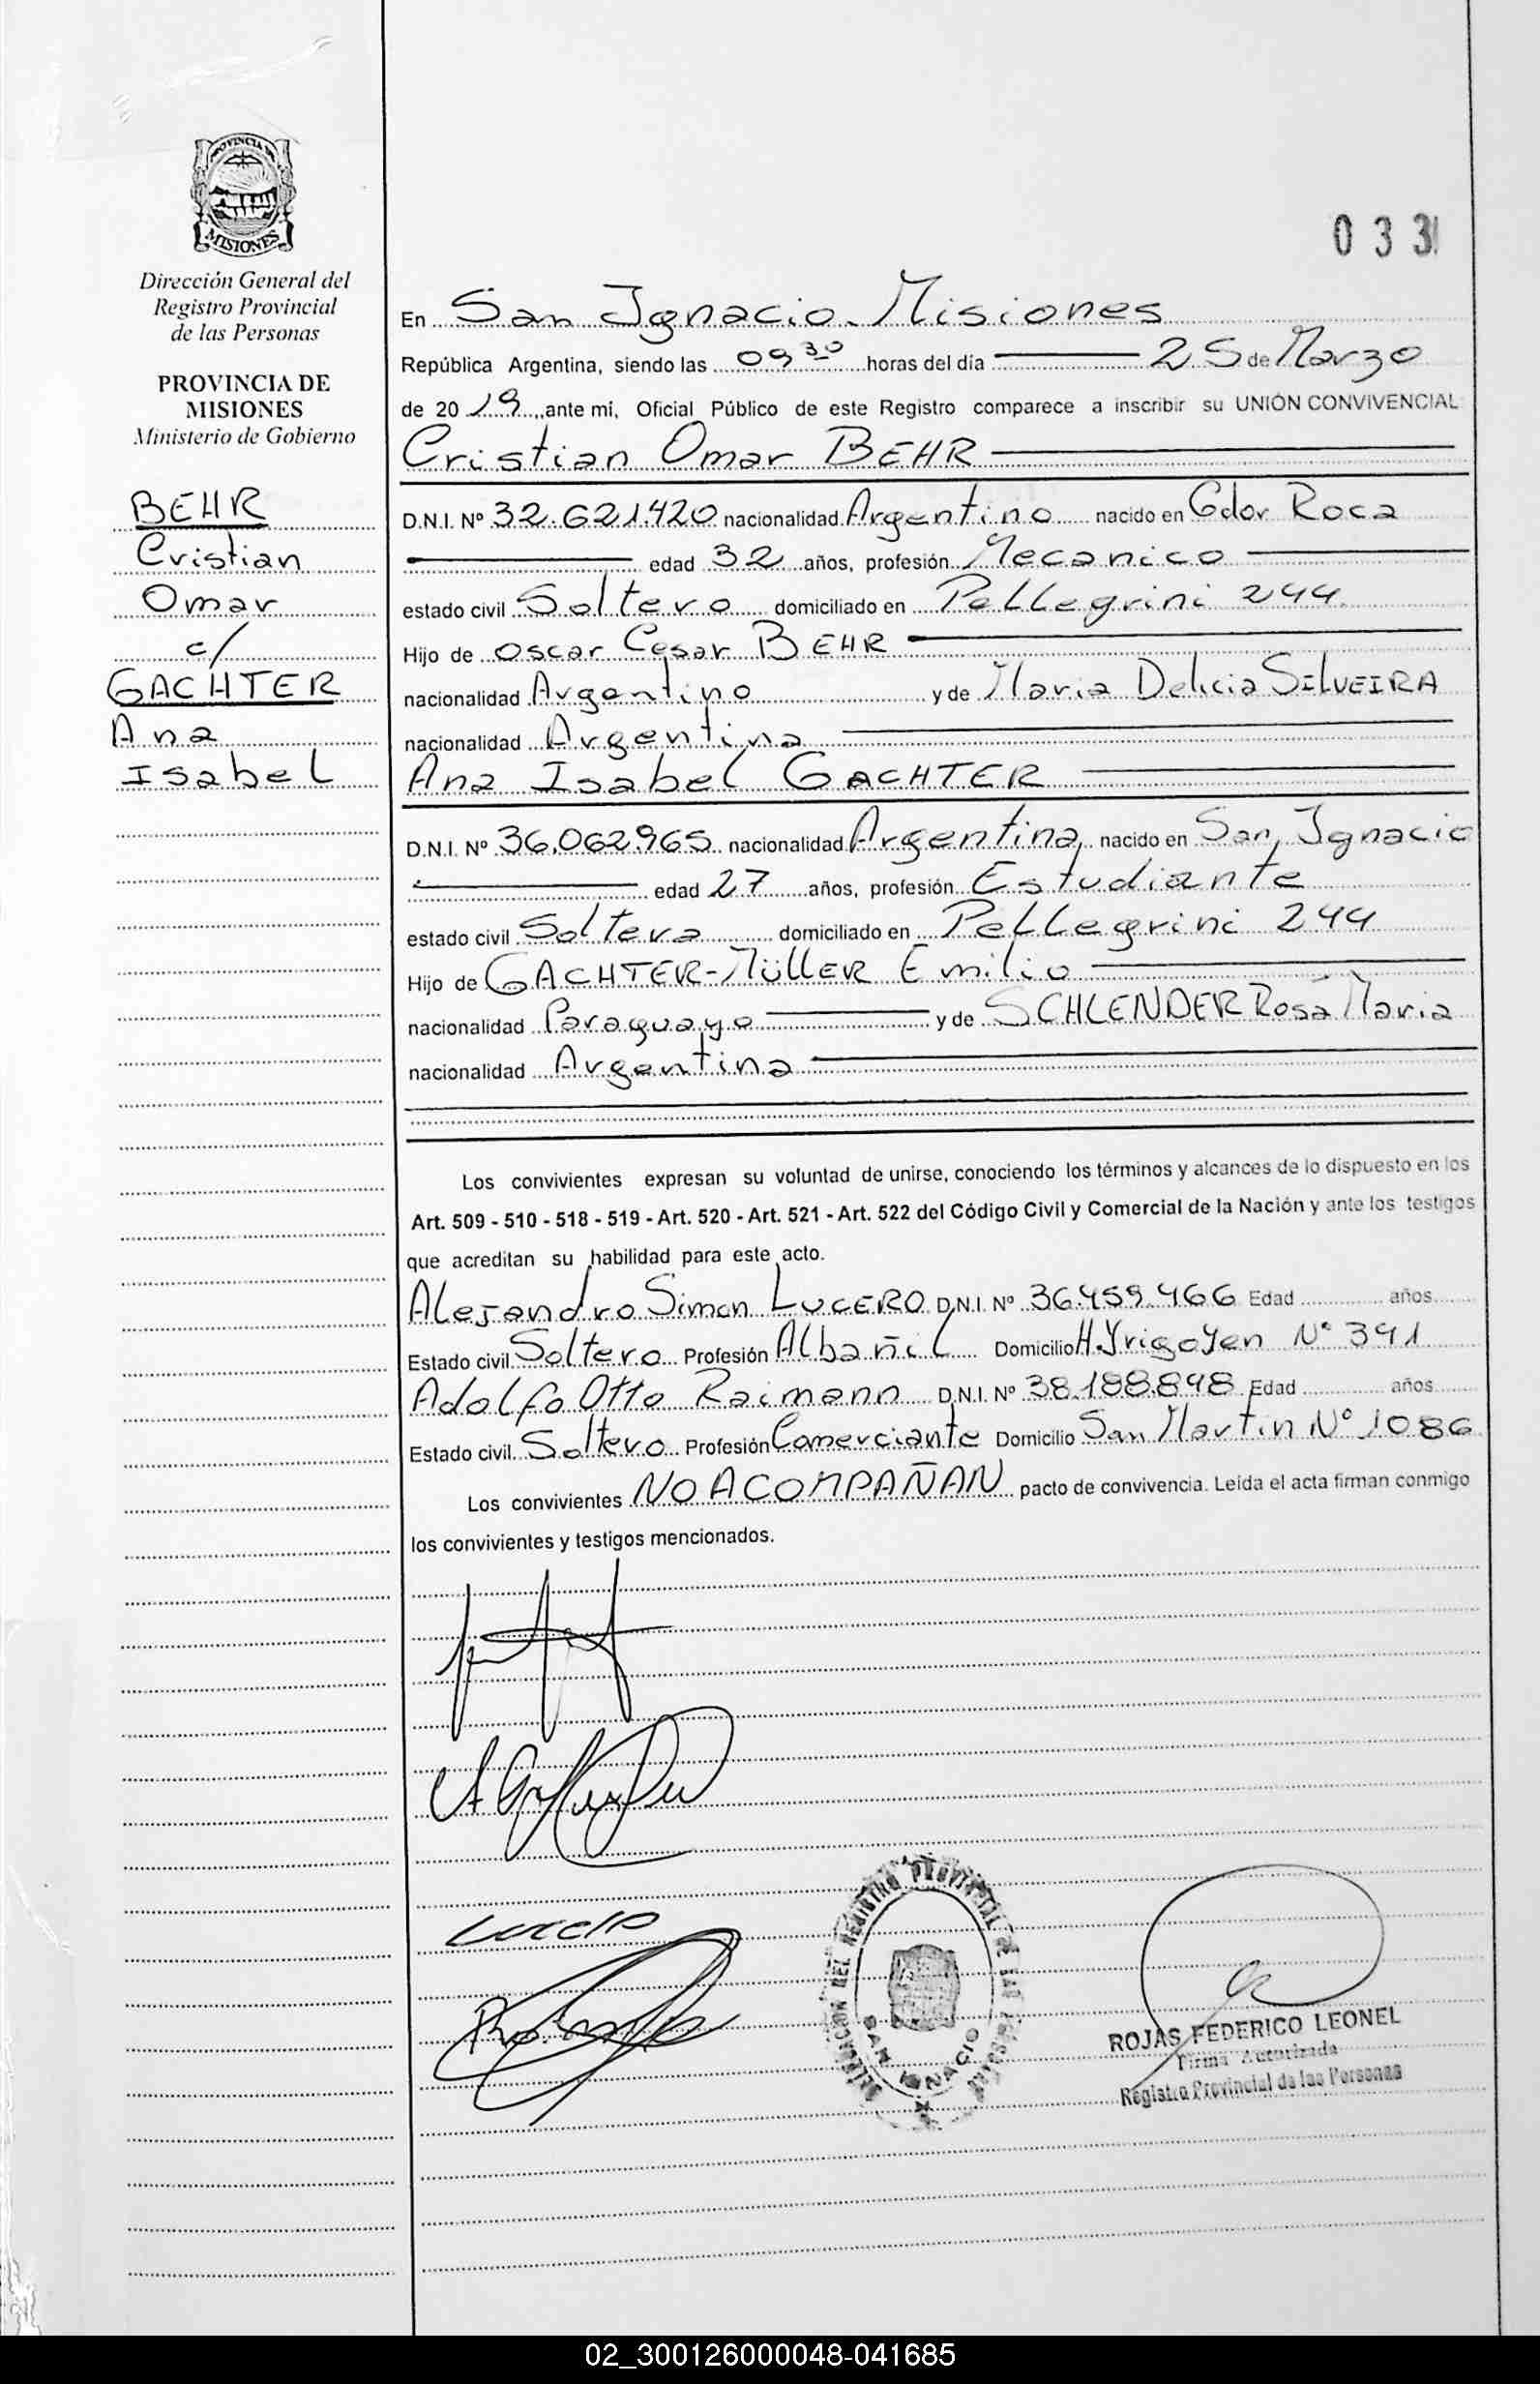 PROVINCIA DE
MISIONES
Dirección General del
Registro Provincial
de las Personas
PROVINCIA DE
MISIONES
Ministerio de Gobierno
BEHR
Cristian
Omar
c/
GACHTER
Ana
Isabel
033
En San Ignacio - Misiones
República Argentina, siendo las 09 30 horas del día 25 de Marzo
de 20 19, ante mi, Oficial Público de este Registro comparece a inscribir su UNIÓN CONVIVENCIAL
Cristian Omar BEHR
D.N.I. Nº 32.621.420 nacionalidad Argentino nacido en Gdor Roca
edad 32 años, profesión Mecanico
estado civil Soltero domiciliado en Pellegrini 244
Hijo de Oscar Cesar BEHR
nacionalidad Argentino y de Maria Delicia SILVEIRA
nacionalidad Argentina
Ana Isabel GACHTER
D.N.I. Nº 36.062.965 nacionalidad Argentina nacido en San Ignacio
edad 27 años, profesión Estudiante
estado civil Soltera domiciliado en Pellegrini 244
Hijo de GACHTER-MÜLLER Emilio
nacionalidad Paraguayo y de SCHLENDER Rosa Maria
nacionalidad Argentina
Los convivientes expresan su voluntad de unirse, conociendo los términos y alcances de lo dispuesto en los
Art. 509 - 510 - 518 - 519 - Art. 520 - Art. 521 - Art. 522 del Código Civil y Comercial de la Nación y ante los testigos
que acreditan su habilidad para este acto.
Alejandro Simon LUCERO D.N.I. Nº 36.459.466 Edad años
Estado civil Soltero Profesión Albañil Domicilio H. Yrigoyen Nº 341
Adolfo Otto Raimann D.N.I. Nº 38.188.898 Edad años
Estado civil Soltero Profesión Comerciante Domicilio San Martin Nº 1086
Los convivientes NO ACOMPAÑAN pacto de convivencia. Leída el acta firman conmigo
los convivientes y testigos mencionados.
DELEGACION DEL REGISTRO PROVINCIAL DE LAS PERSONAS
SAN IGNACIO
ROJAS FEDERICO LEONEL
Firma Autorizada
Registro Provincial de las Personas
02_300126000048-041685